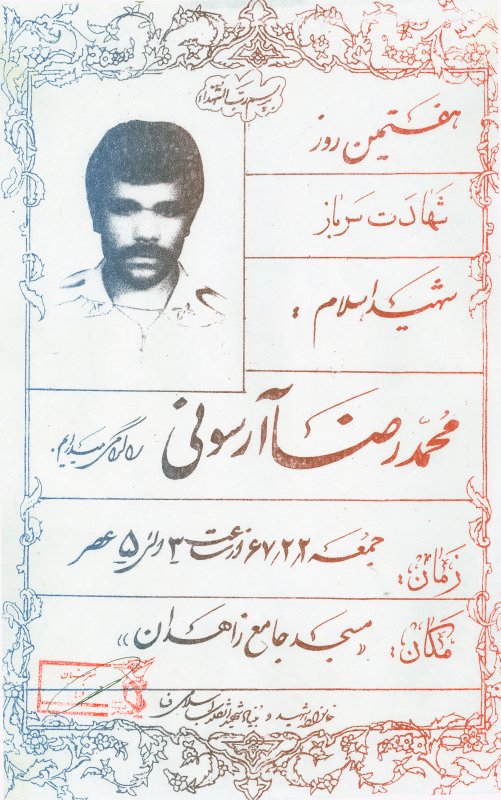 بسم رب الشهدا
هفتمین روز
شهادت سرباز
شهید اسلام :
محمدرضا آرسونی را گرامی میداریم.
زمان: جمعه ۶۷/۲/۲ از ساعت ۳ الی ۵ عصر
مکان: «مسجد جامع زاهدان»
خانواده شهید و بنیاد شهید انقلاب اسلامی فسا